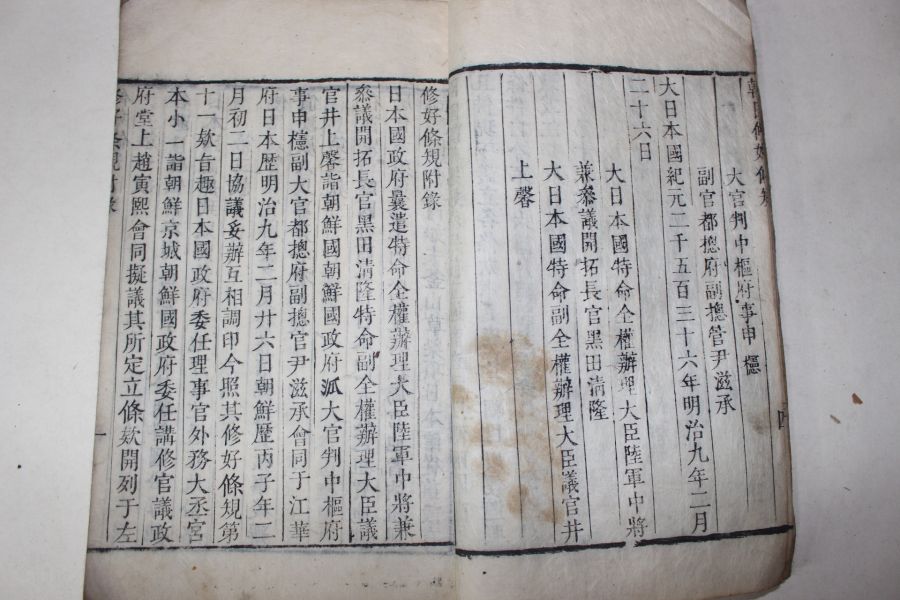 朝日修好條規
大官判中樞府事申櫶
副官都摠府副摠管尹滋承
大日本國紀元二千五百三十六年明治九年二月
二十六日
大日本國特命全權辦理大臣陸軍中將
兼叅議開拓長官黑田清隆
大日本國特命副全權辦理大臣議官井
上馨
四
修好條規附錄
日本國政府曩遣特命全權辦理大臣陸軍中將兼
叅議開拓長官黑田清隆特命副全權辦理大臣議
官井上馨詣朝鮮國朝鮮國政府派大官判中樞府
事申櫶副大官都摠府副摠官尹滋承會同于江華
府日本歷明治九年二月廿六日朝鮮歷丙子年二
月初二日協議妥辦互相調印今照其修好條規第
十一欵旨趣日本國政府委任理事官外務大丞宮
本小一詣朝鮮京城朝鮮國政府委任講修官議政
府堂上趙寅熙會同擬議其所定立條欵開列于左
修好條規附錄
一